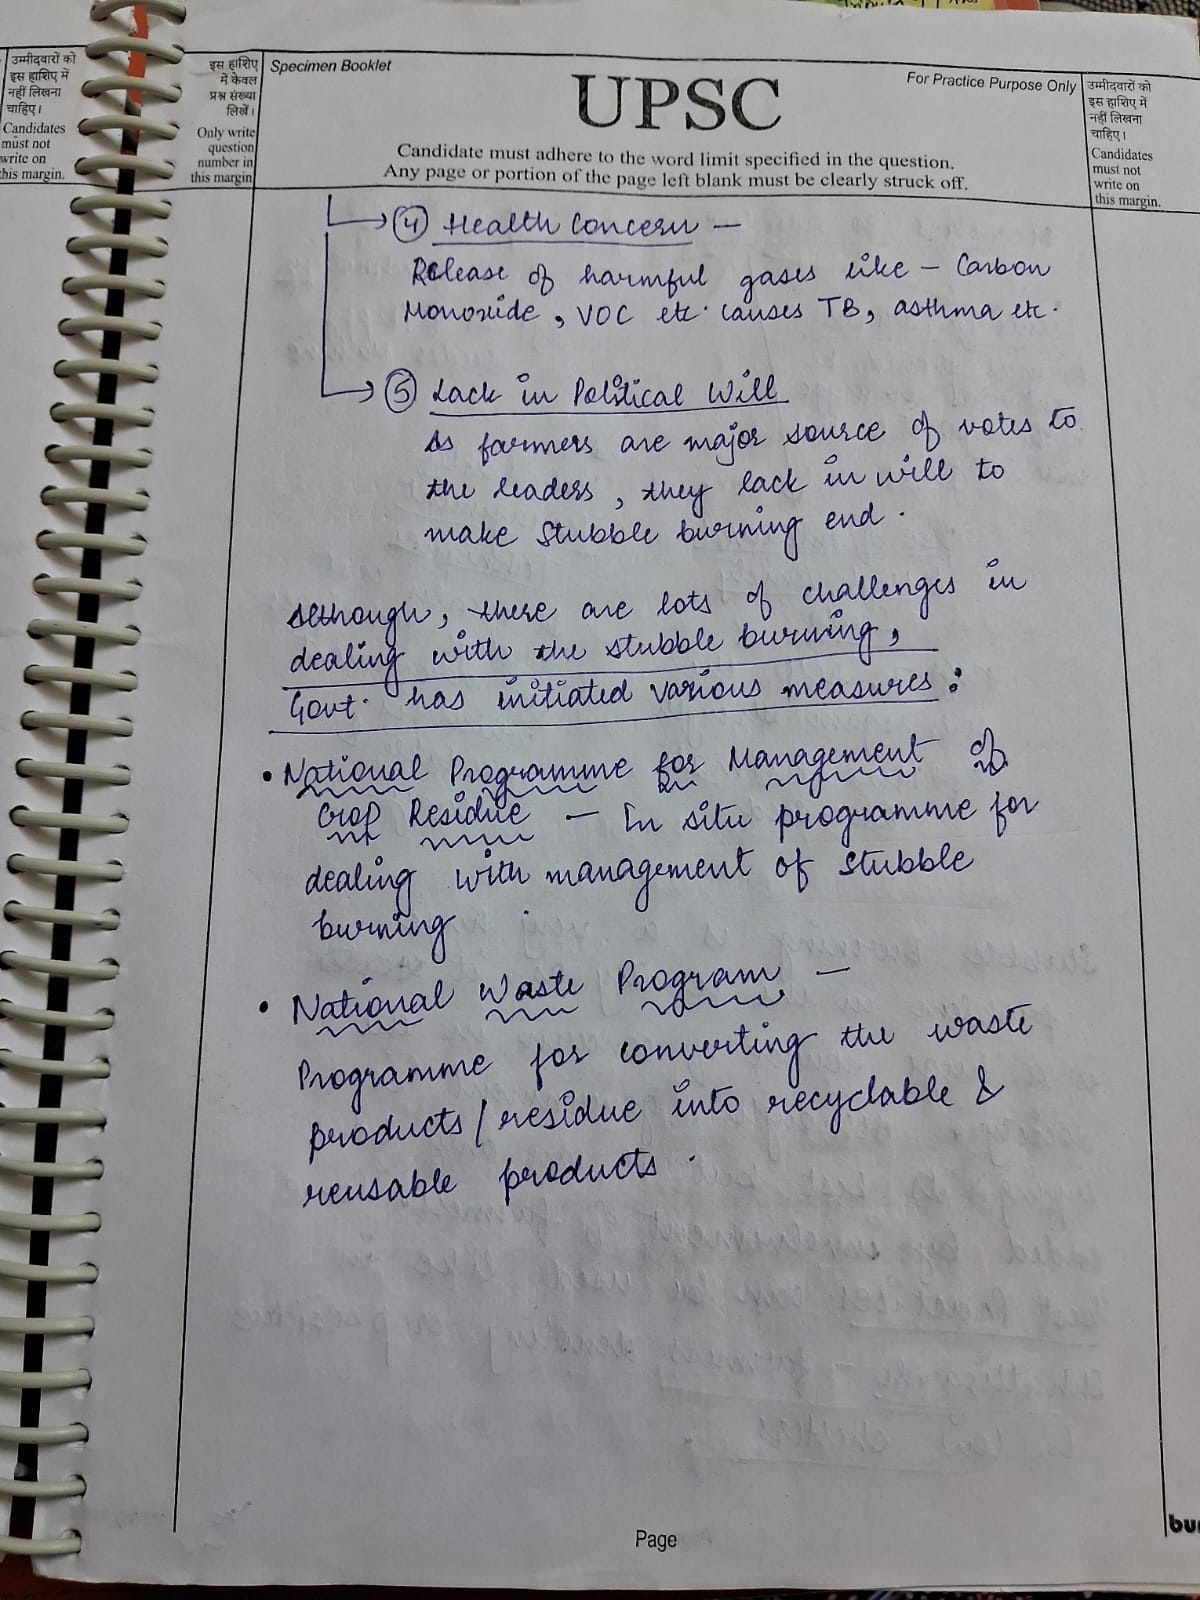 उम्मीदवारों को
इस हाशिए में
नहीं लिखना
चाहिए।
Candidates
must not
write on
this margin.
इस हाशिए
में केवल
प्रश्न संख्या
लिखें।
Only write
question
number in
this margin
Specimen Booklet
UPSC
For Practice Purpose Only
Candidate must adhere to the word limit specified in the question.
Any page or portion of the page left blank must be clearly struck off.
उम्मीदवारों को
इस हाशिए में
नहीं लिखना
चाहिए।
Candidates
must not
write on
this margin.
4 Health Concern —
Release of harmful gases like – Carbon
Monoxide, VOC etc. causes TB, asthma etc.
5 Lack in Political Will
As farmers are major source of votes to
the leaders, they lack in will to
make stubble burning end.
Although, there are lots of challenges in
dealing with the stubble burning,
Govt. has initiated various measures:
• National Programme for Management of
Crop Residue — In situ programme for
dealing with management of stubble
burning
• National Waste Program —
Programme for converting the waste
products/residue into recyclable &
reusable products.
Page